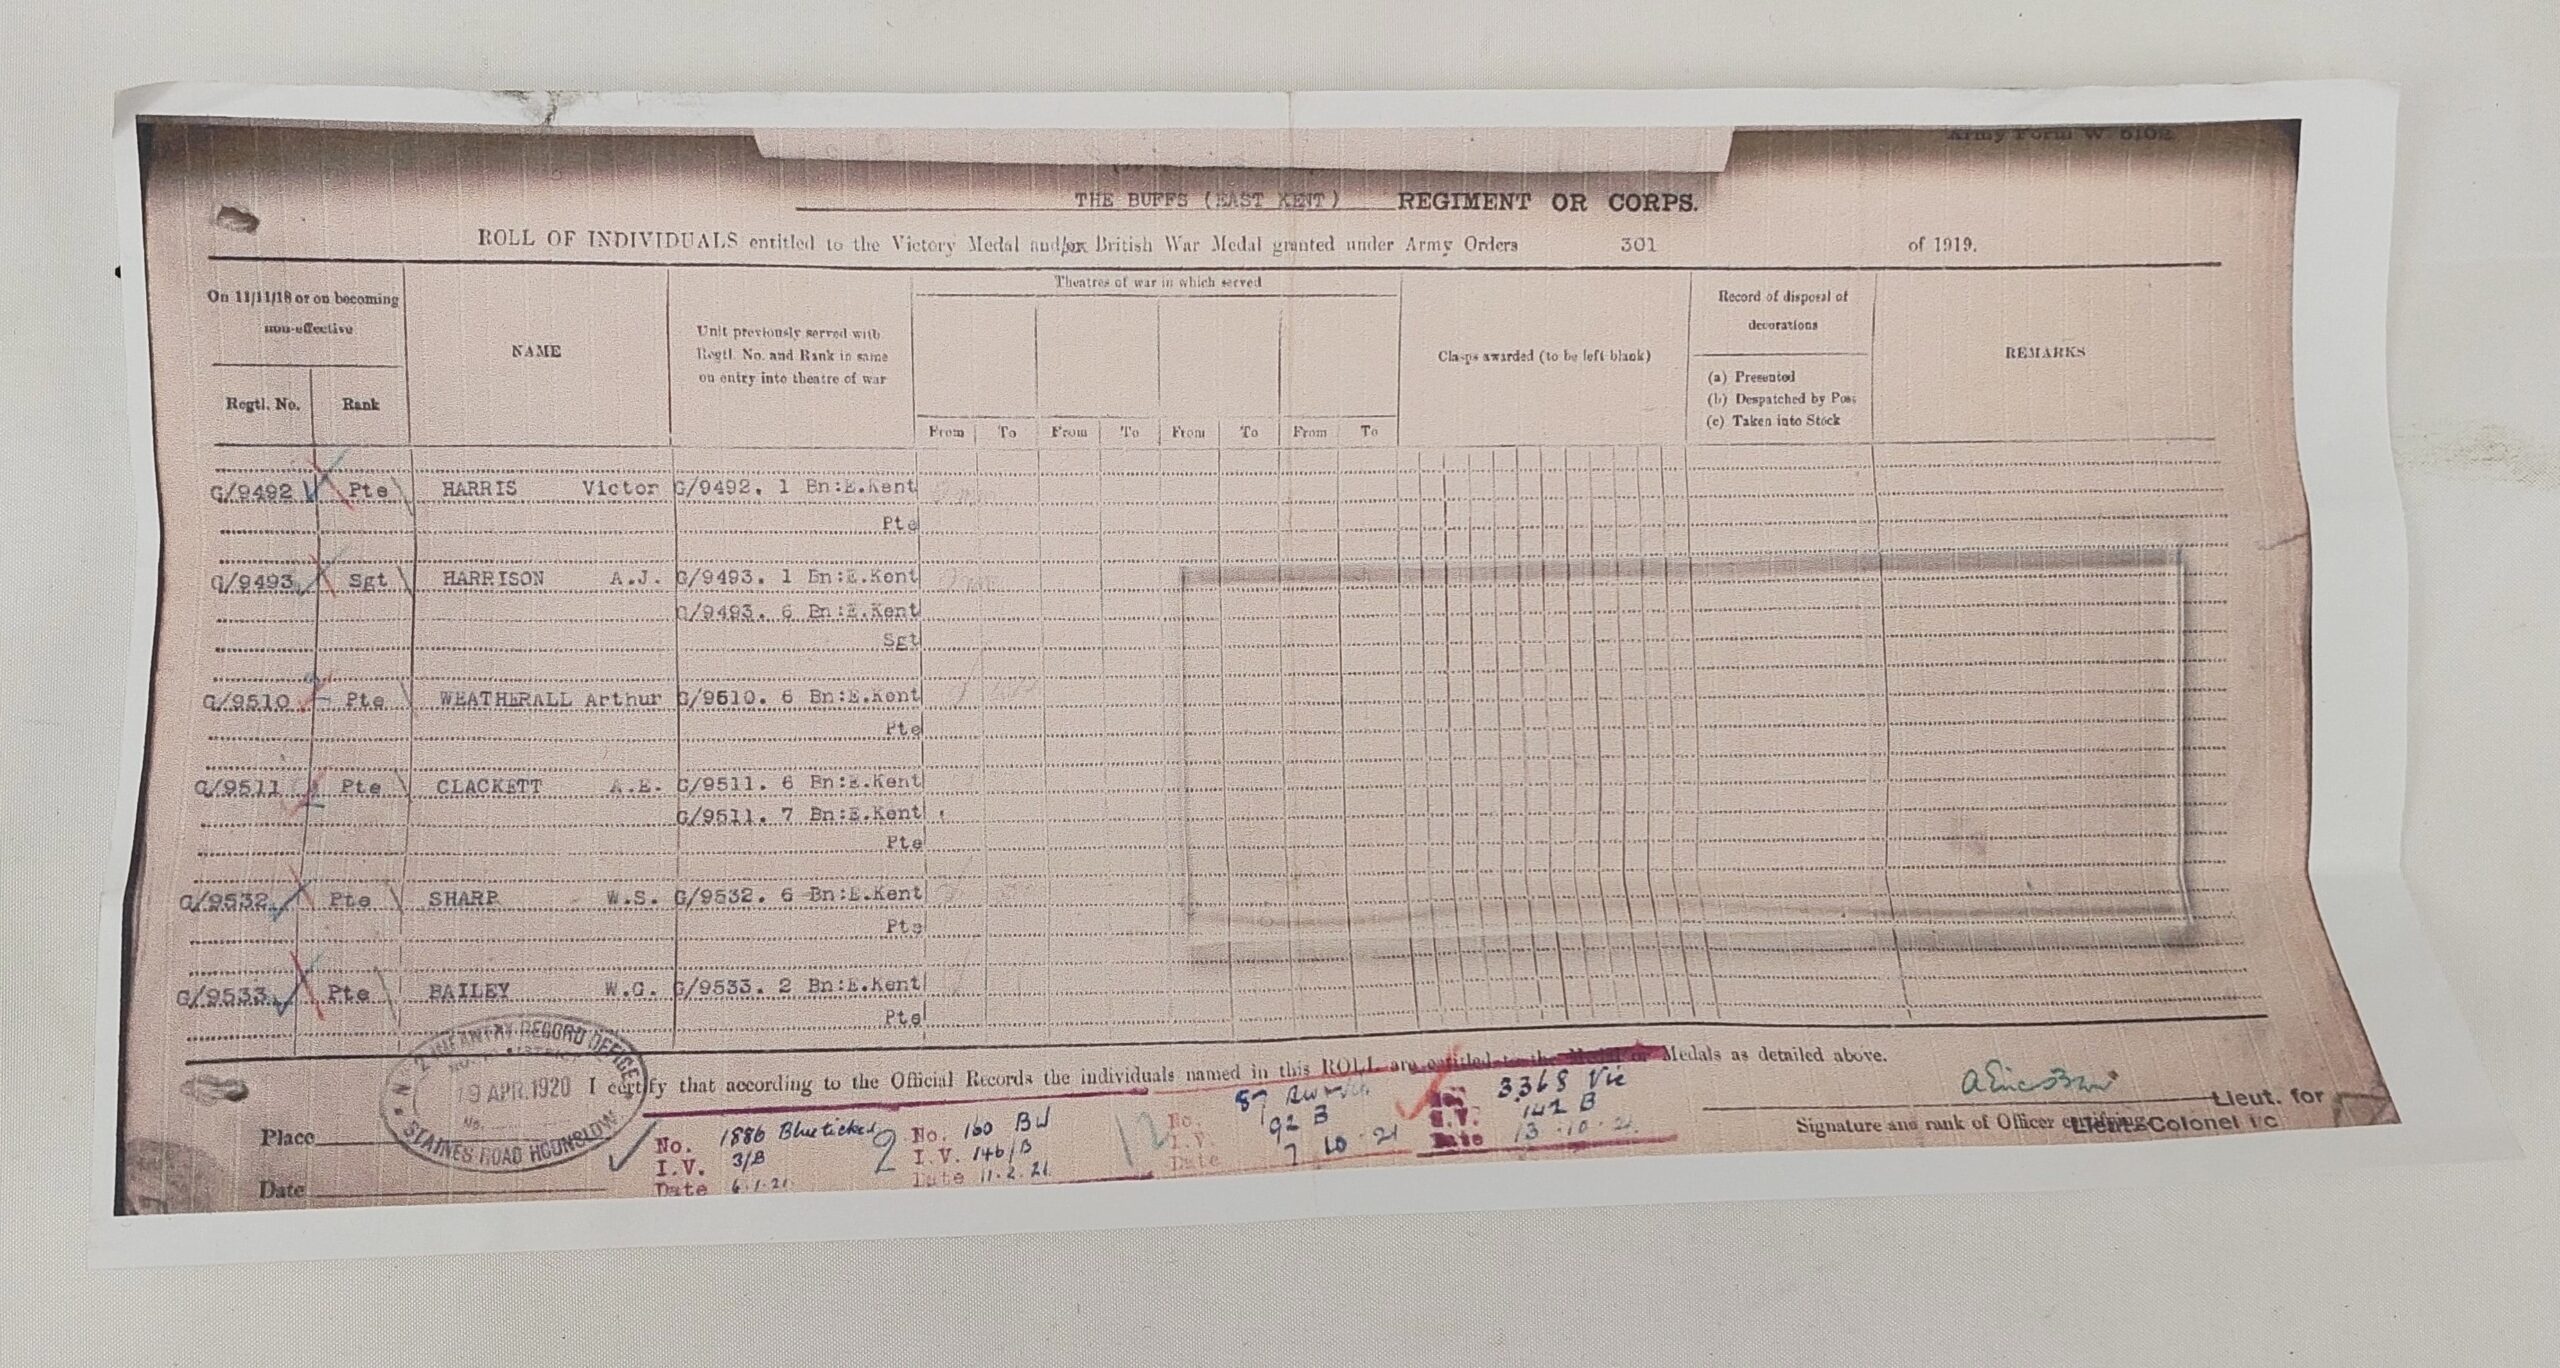 Army Form W. 5102.
THE BUFFS (EAST KENT) REGIMENT OR CORPS.
ROLL OF INDIVIDUALS entitled to the Victory Medal and/or British War Medal granted under Army Orders 301 of 1919.
On 11/11/18 or on becoming
non-effective
Regtl. No. Rank
NAME
Unit previously served with
Regtl. No. and Rank in same
on entry into theatre of war
Theatres of war in which served
From To From To From To From To
Clasps awarded (to be left blank)
Record of disposal of
decorations
(a) Presented
(b) Despatched by Post
(c) Taken into Stock
REMARKS
G/9492 Pte HARRIS Victor G/9492. 1 Bn:E.Kent
Pte
G/9493 Sgt HARRISON A.J. G/9493. 1 Bn:E.Kent
G/9493. 6 Bn:E.Kent
Sgt
G/9510 Pte WEATHERALL Arthur G/9510. 6 Bn:E.Kent
Pte
G/9511 Pte CLACKETT A.E. G/9511. 6 Bn:E.Kent
G/9511. 7 Bn:E.Kent
Pte
G/9532 Pte SHARP W.S. G/9532. 6 Bn:E.Kent
Pte
G/9533 Pte BAILEY W.G. G/9533. 2 Bn:E.Kent
Pte
I certify that according to the Official Records the individuals named in this ROLL are entitled to the Medal or Medals as detailed above.
INFANTRY RECORD OFFICE
19 APR. 1920
No.
STAINES ROAD HOUNSLOW
Place
Date
No. 1886 Blue ticked
I.V. 3/B
Date 6.1.21
2
No. 160 BW
I.V. 146/B
Date 11.2.21
12
No. 87
I.V. 92 B
Date 7 10 21
No. 3368 Vic
I.V. 142 B
Date 13.10.21.
Lieut. for
Signature and rank of Officer certifying
Lieut-Colonel i/c